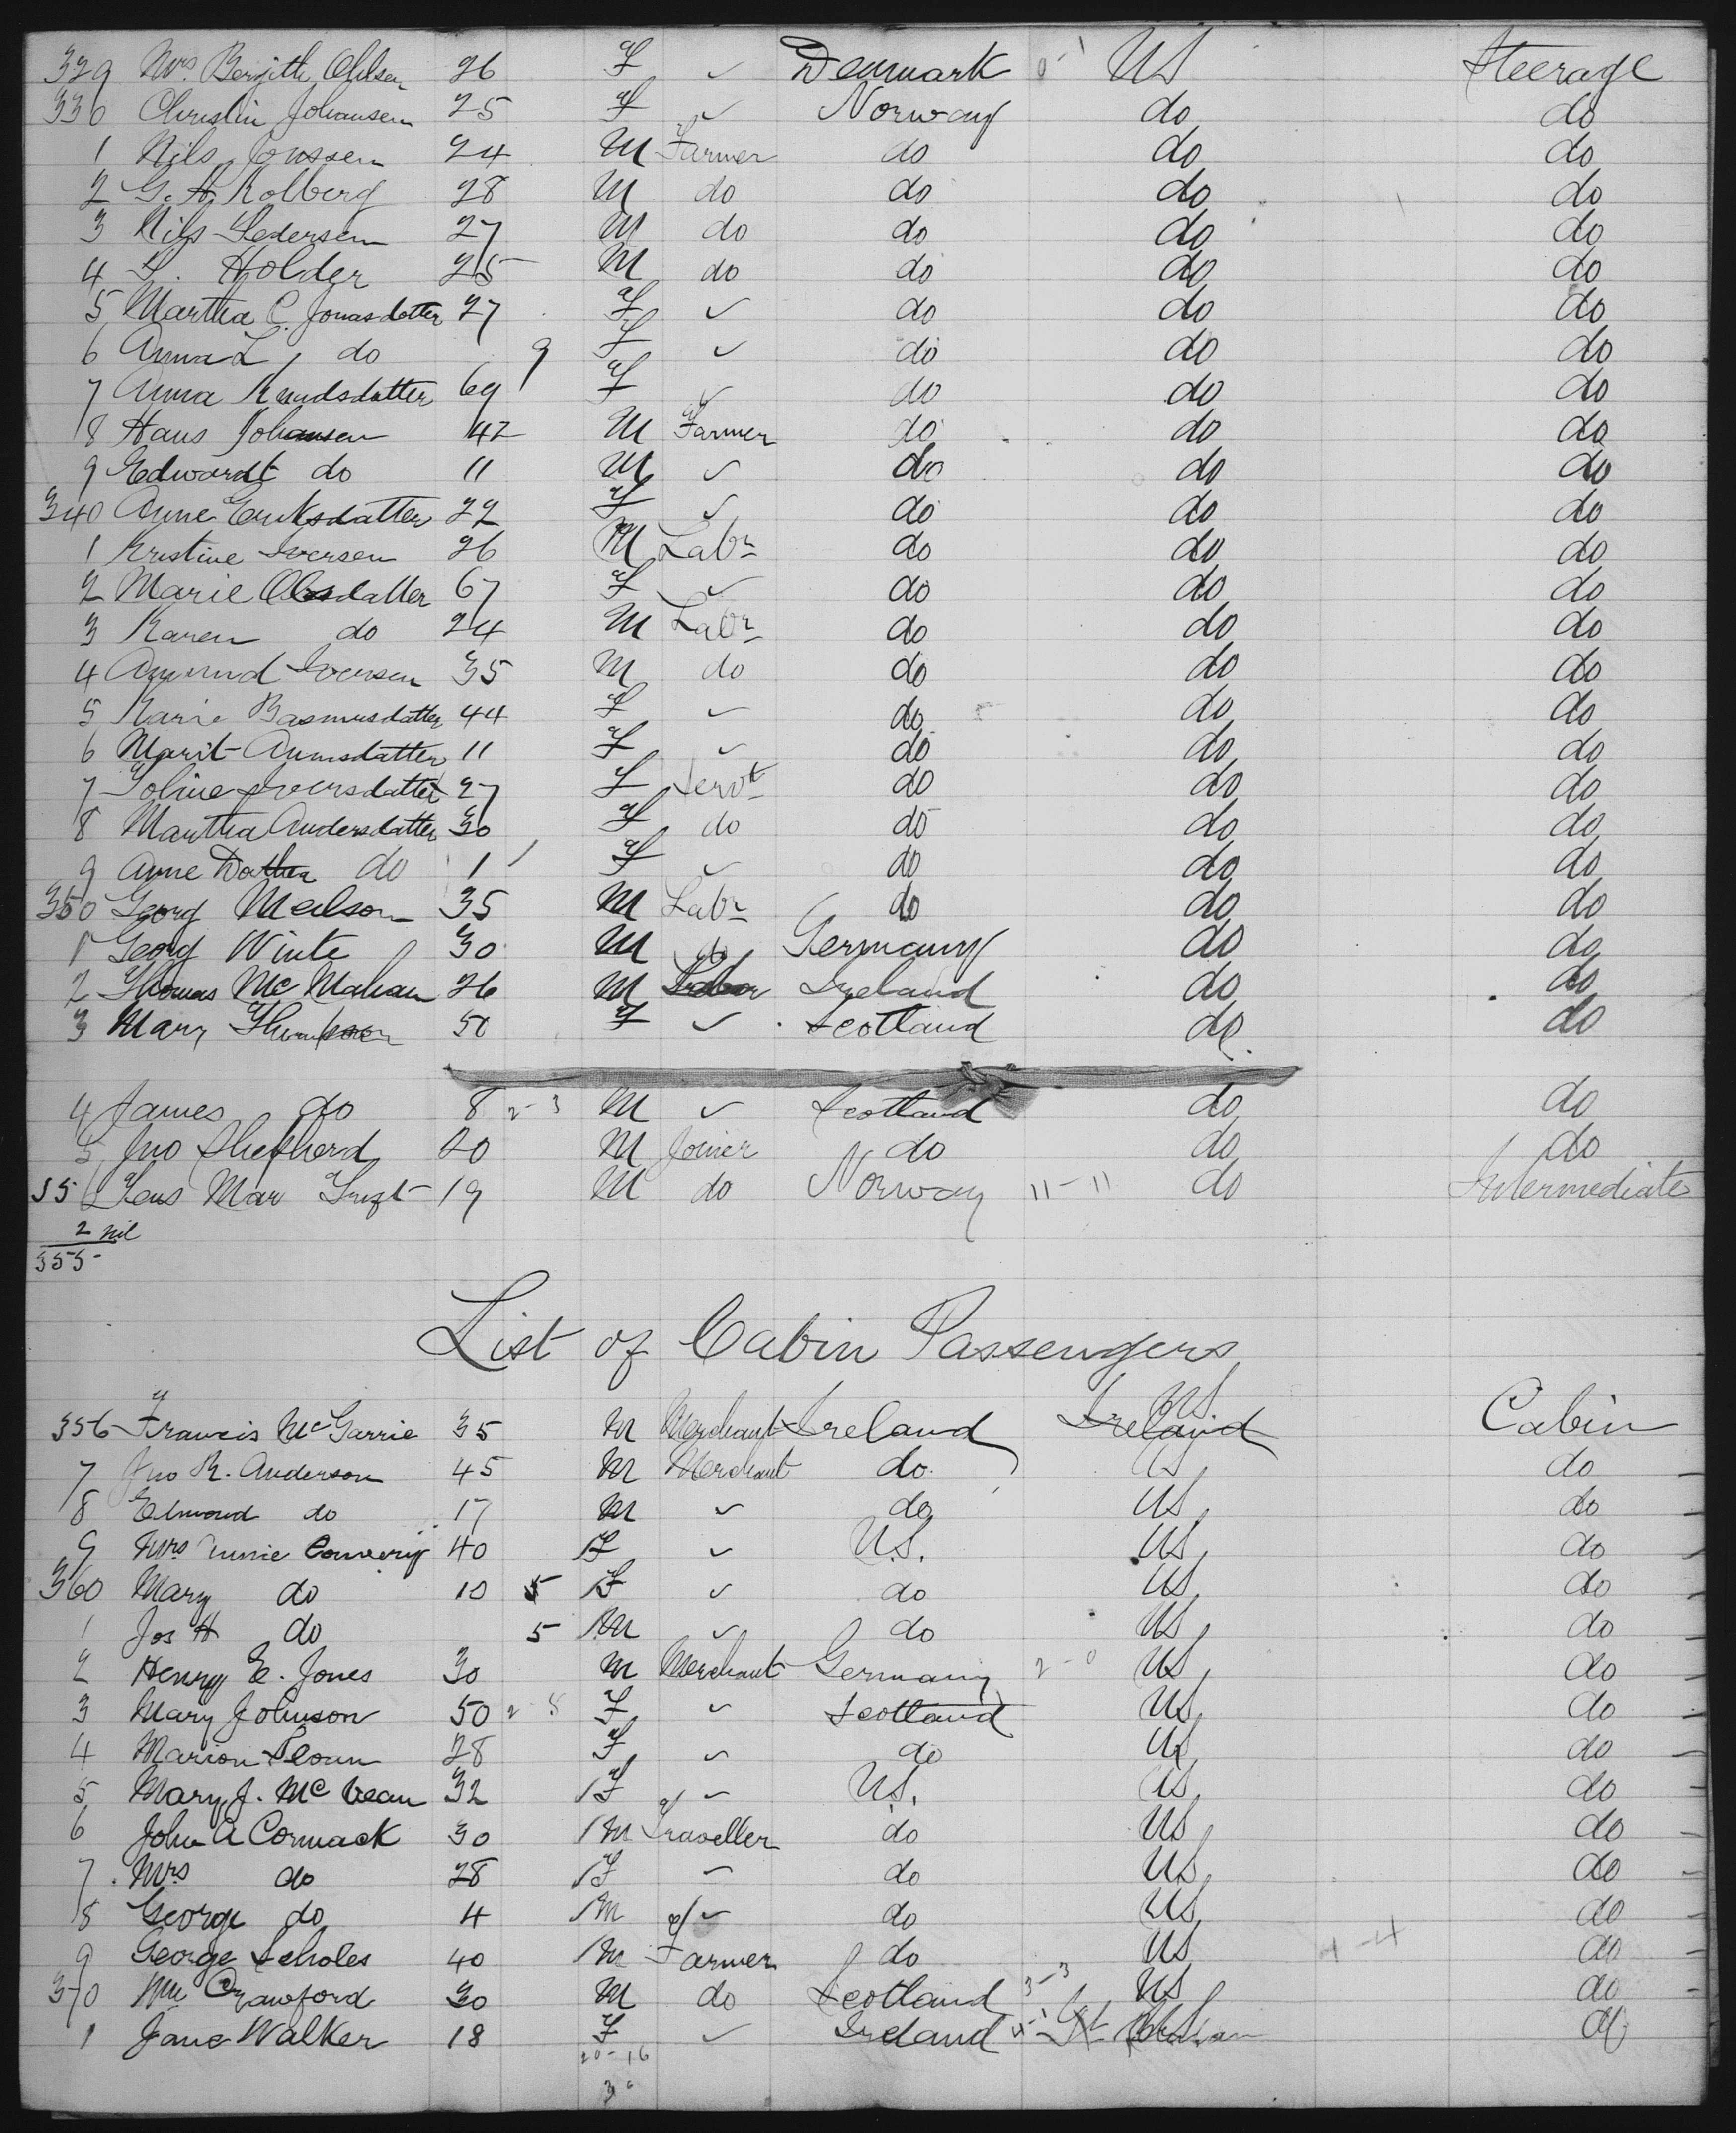 329 Mrs Bergitte Ohlsen 26 F ✓ Denmark 0-1 US Steerage
330 Christin Johansen 25 F ✓ Norway do do
1 Nils Jonssen 24 M Farmer do do do
2 G. A. Kolberg 28 M do do do do
3 Nils Pedersen 27 M do do do do
4 L. Holder 25 M do do do do
5 Martha C. Jonasdatter 27 F ✓ do do do
6 Anna L, do 9 F ✓ do do do
7 Anna Knudsdatter 69 F ✓ do do do
8 Hans Johansen 42 M Farmer do do do
9 Edwardt do 11 M ✓ do do do
340 Anne Eriksdatter 22 F ✓ do do do
1 Kristine Iversen 26 M Labr do do do
2 Marie Olesdatter 67 F ✓ do do do
3 Karen do 24 M Labr do do do
4 Amund Iversen 35 M do do do do
5 Karie Rasmusdatter 44 F ✓ do do do
6 Marit Aunsdatter 11 F ✓ do do do
7 Toline Iversdatter 27 F Servt do do do
8 Martha Andersdatter 30 F do do do do
9 Anne Dathea do 1 F ✓ do do do
350 Georg Meilson 35 M Labr do do do
1 Georg Winte 30 M do Germany do do
2 Thomas McMahan 26 M Labor Ireland do do
3 Mary Thompson 50 F ✓ Scotland do do
4 James do 8 2-3 M ✓ Scotland do do
5 Jno Shepherd 20 M Joiner do do do
35 Lens Mar 19 M do Norway 11-11 do Intermediate
2 nil
355
List of Cabin Passengers
356 Francis McGarrie 35 M Merchant Ireland Ireland US Cabin
7 Jno R. Anderson 45 M Merchant do US do
8 Edmond do 17 M ✓ do US do
9 Mrs Annie Convery 40 1F ✓ U.S. US do
360 Mary do 10 5 1F ✓ do US do
1 Jos H do 5 1M ✓ do US do
2 Henry E. Jones 30 M Merchant Germany 2-0 US do
3 Mary Johnson 50 2-5 F ✓ Scotland US do
4 Marion Sloan 28 F ✓ do US do
5 Mary J. McBean 32 1F ✓ U.S. US do
6 John A Cormack 30 1M Traveller do US do
7 Mrs do 28 1F ✓ do US do
8 George do 4 1M ✓ do US do
9 George Scholes 40 1M Farmer do US 4-4 do
370 Mr Crawford 30 M do Scotland 3-3 US do
1 Jane Walker 18 F ✓ Ireland do
20-16
3